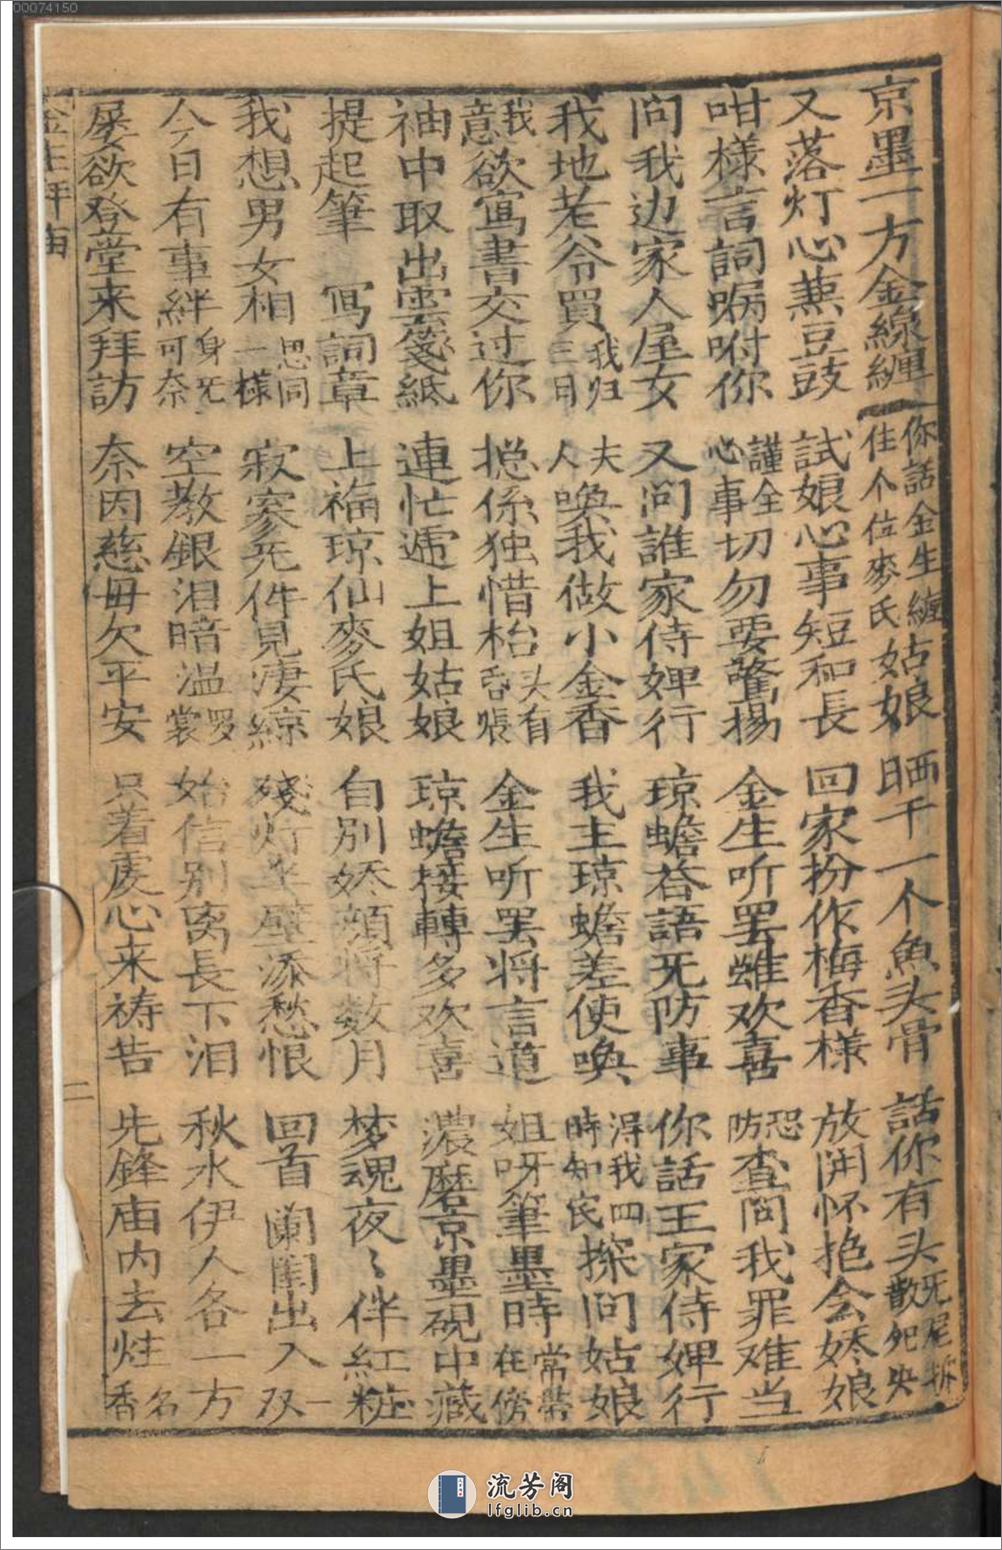 00074150
京墨一方金線纏 你話金生纏住个位麥氏姑娘 晒干一个魚头骨 話你有头旡尾拆散鸳央
又落灯心兼豆豉 試娘心事短和長 回家扮作梅香樣 放開怀抱会娇娘
咁樣言詞嘱咐你 謹全心事切勿要驚揚 金生听罢雖欢喜 恐防查問我罪难当
問我边家人屋女 又問誰家侍婢行 琼蟾答語旡防事 你話王家侍婢行
我地老爷買我归三日 夫人喚我做小金香 我主琼蟾差使喚 得我四時知宻探問姑娘
我意欲寫書交过你 捴係独惜枱头有舀帳 金生听罢将言道 姐呀筆墨時常帶在傍
袖中取出雲箋紙 連忙遞上姐姑娘 琼蟾接轉多欢喜 濃磨京墨硯中藏
提起筆 寫詞章 上福琼仙麥氏娘 自别娇顔将数月 梦魂夜〻伴紅粧
我想男女相思同一樣 寂寥旡伴見凄綡 殘灯半壁添愁恨 回首蘭閨出入双
今日有事絆身旡可奈 空教銀泪暗温罗裳 始信别离長下泪 秋水伊人各一方
屡欲登堂来拜訪 奈因慈毋欠平安 只着虔心来祷告 先鋒庙内去炷名香
金生拜庙
二
流芳阁
lfglib.cn